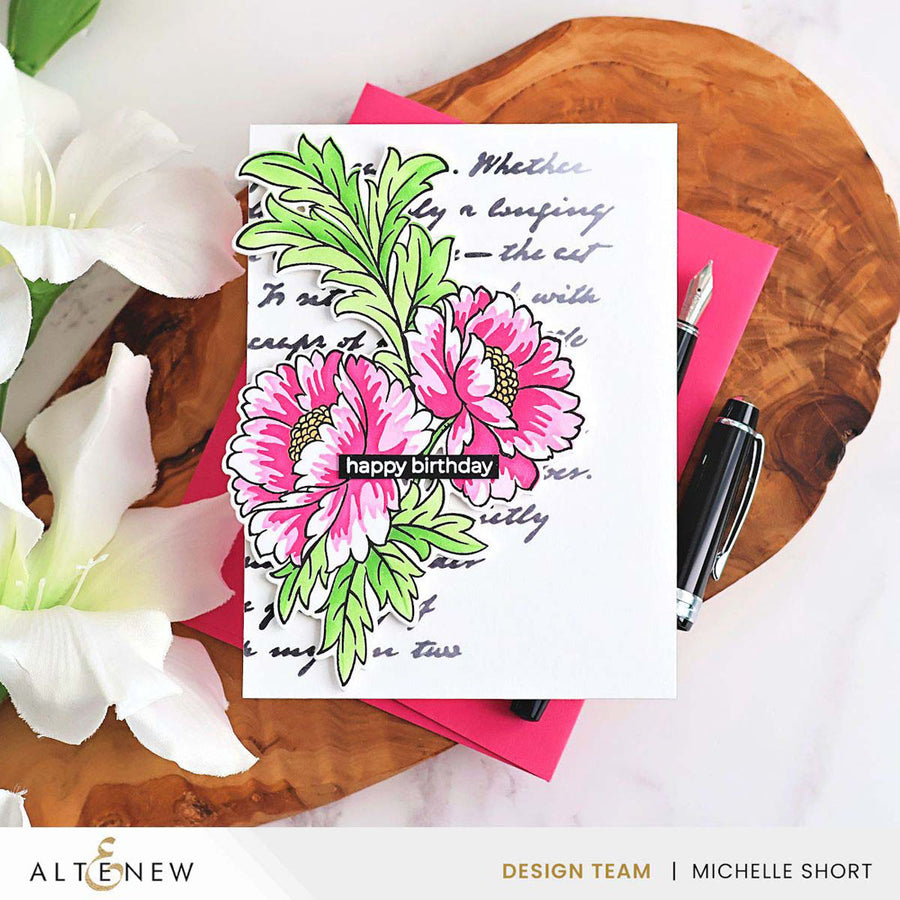 . Whether
ly a longing
— the cet
To set with
scraps of
happy birthday
ver.
ietly
air
of
my two
ALTENEW
DESIGN TEAM | MICHELLE SHORT